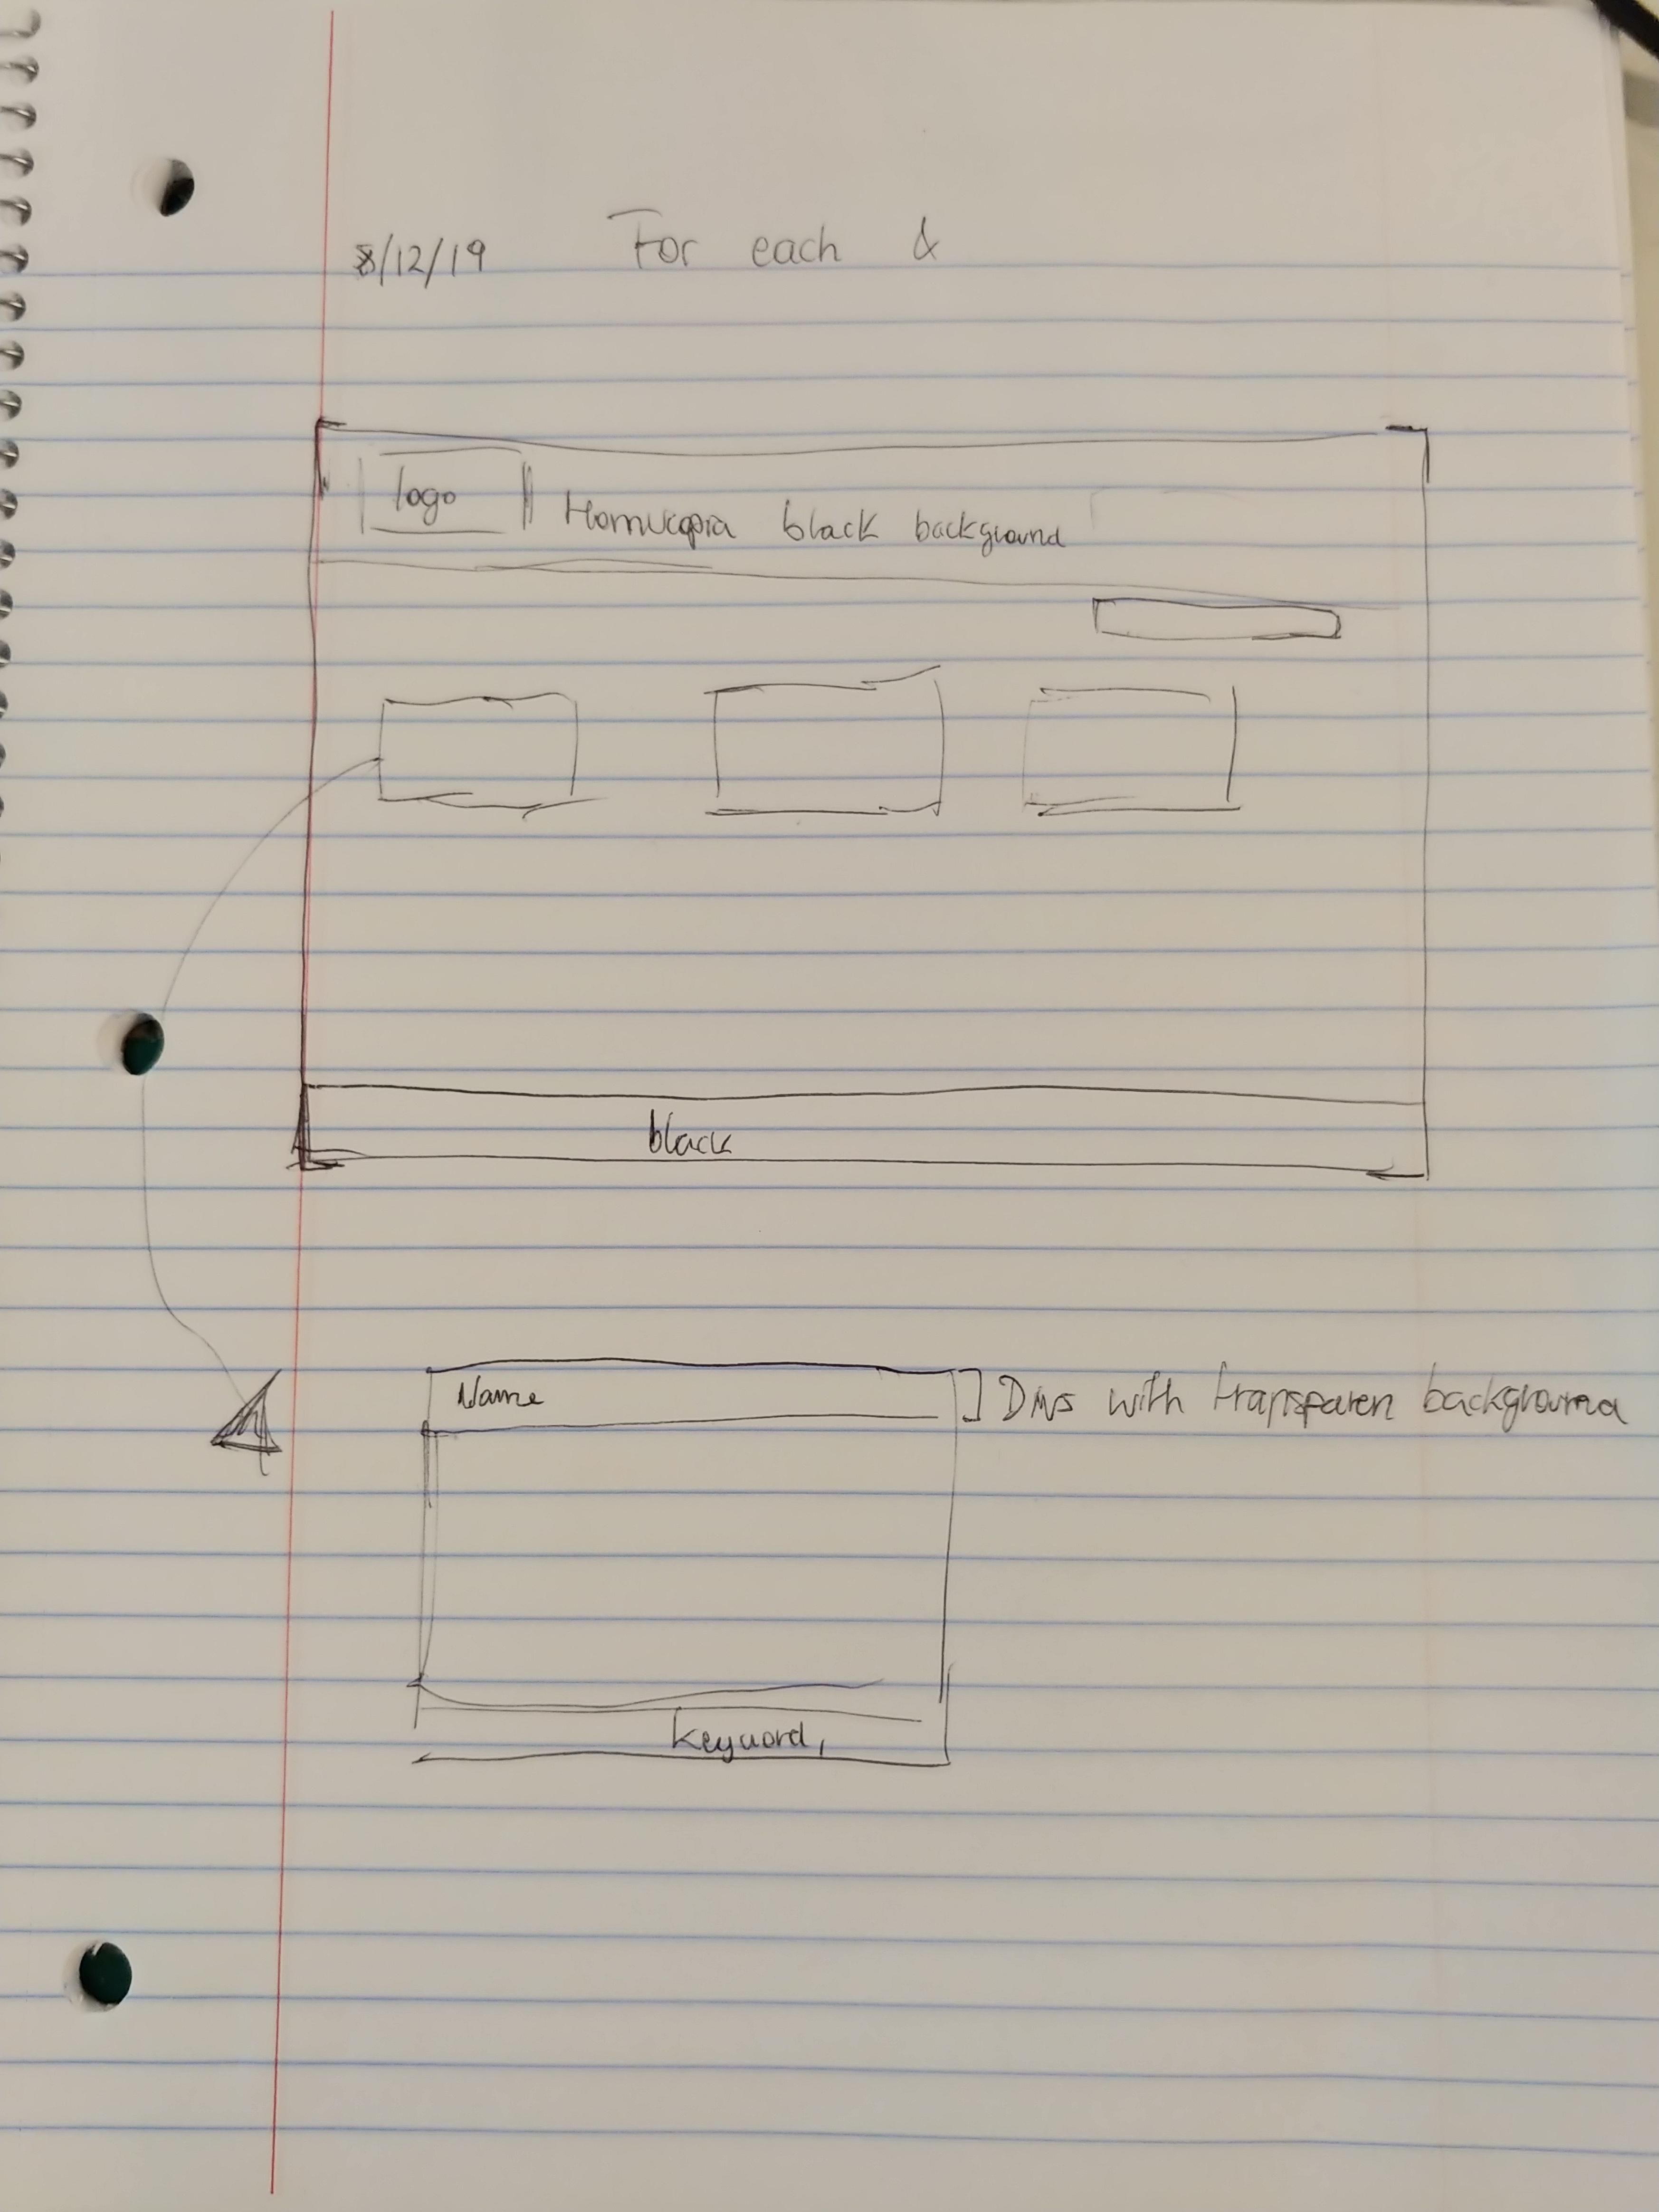 8/12/19 For each &
logo
Homucopia black background
black
Name
Divs with transparen background
keyword,